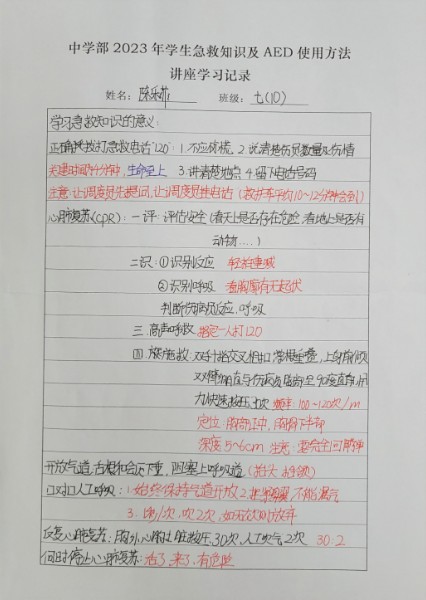 中学部 2023 年学生急救知识及 AED 使用方法
讲座学习记录
姓名： 班级：七(10)
学习急救知识的意义：
正确拨打急救电话"120"：1.不应慌慌，2.说清楚伤员数量及伤情
关键时间4分钟，生命至上 3.讲清楚地点 4.留下电话号码
注意：让调度员先提问，让调度员挂电话（救护车平均10~12分钟会到）
心肺复苏(CPR)：一评：评估安全（看天上是否存在危险，看地上是否有
动物....）
二识：①识别反应 轻拍重喊
②识别呼吸 看胸廓有无起伏
判断伤病员反应，呼吸
三 高声呼救 指定一人打120
双手十指交叉相扣 掌根重叠，上身前倾
双臂
力快速按压30次 频率：100~120次/m
定位：胸部正中，胸骨下半部
深度：5~6cm 注意：要完全回弹
开放气道，舌根和会厌下垂，阻塞上呼吸道（抬头
口对口人工呼吸：1.始终保持气道开放 2. 不能漏气
3. 吹2次，
反复心肺复苏：胸外心脏按压30次，人工吹气2次 30：2
何时停止心肺复苏：活了，来了，有危险